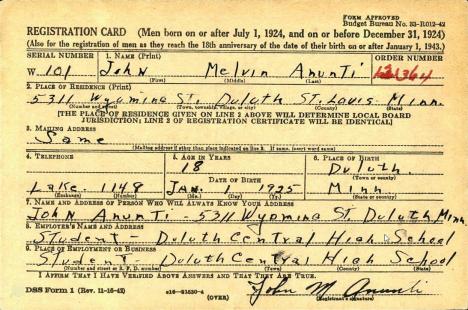 FORM APPROVED
Budget Bureau No. 33-R012-42
REGISTRATION CARD (Men born on or after July 1, 1924, and on or before December 31, 1924)
(Also for the registration of men as they reach the 18th anniversary of the date of their birth on or after January 1, 1943.)
SERIAL NUMBER 1. NAME (Print) ORDER NUMBER
W 101 John Melvin Anunti 12,364
(First) (Middle) (Last)
2. PLACE OF RESIDENCE (Print)
5311 Wyoming St. Duluth St. Louis Minn.
(Number and street) (Town, township, village, or city) (County) (State)
[THE PLACE OF RESIDENCE GIVEN ON LINE 2 ABOVE WILL DETERMINE LOCAL BOARD
JURISDICTION; LINE 2 OF REGISTRATION CERTIFICATE WILL BE IDENTICAL]
3. MAILING ADDRESS
Same
[Mailing address if other than place indicated on line 2. If same, insert word same]
4. TELEPHONE 5. AGE IN YEARS 6. PLACE OF BIRTH
18 Duluth
DATE OF BIRTH (Town or county)
Lake 1148 Jan. 1 1925 Minn
(Exchange) (Number) (Mo.) (Day) (Yr.) (State or country)
7. NAME AND ADDRESS OF PERSON WHO WILL ALWAYS KNOW YOUR ADDRESS
John Anunti - 5311 Wyoming St. Duluth Minn.
8. EMPLOYER'S NAME AND ADDRESS
Student - Duluth Central High School
9. PLACE OF EMPLOYMENT OR BUSINESS
Student - Duluth Central High School
(Number and street or R. F. D. number) (Town) (County) (State)
I AFFIRM THAT I HAVE VERIFIED ABOVE ANSWERS AND THAT THEY ARE TRUE.
DSS Form 1 (Rev. 11-16-42) (OVER) John M. Anunti
(Registrant's signature)